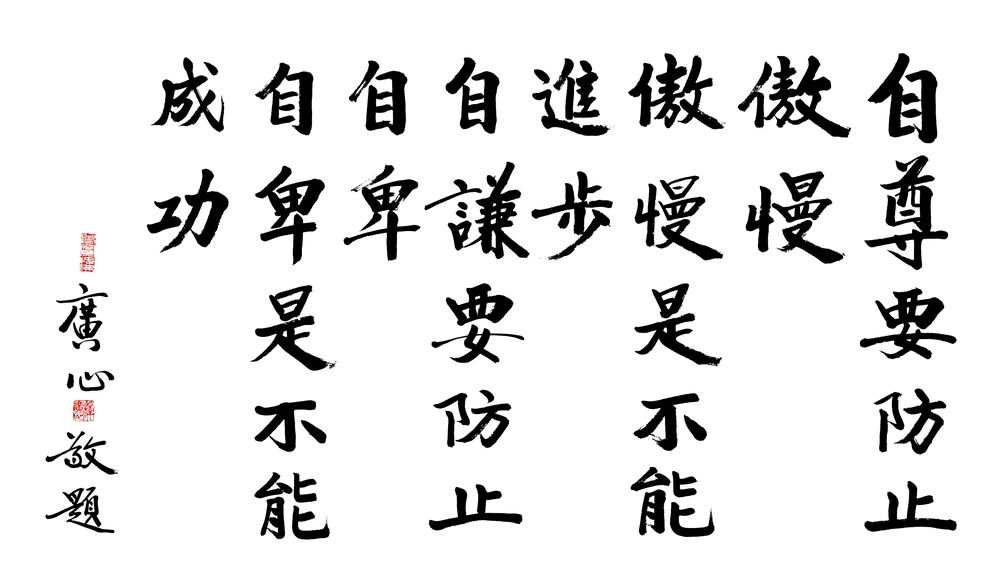 自尊要防止
傲慢
傲慢是不能
進步
自謙要防止
自卑
自卑是不能
成功
廣心敬題